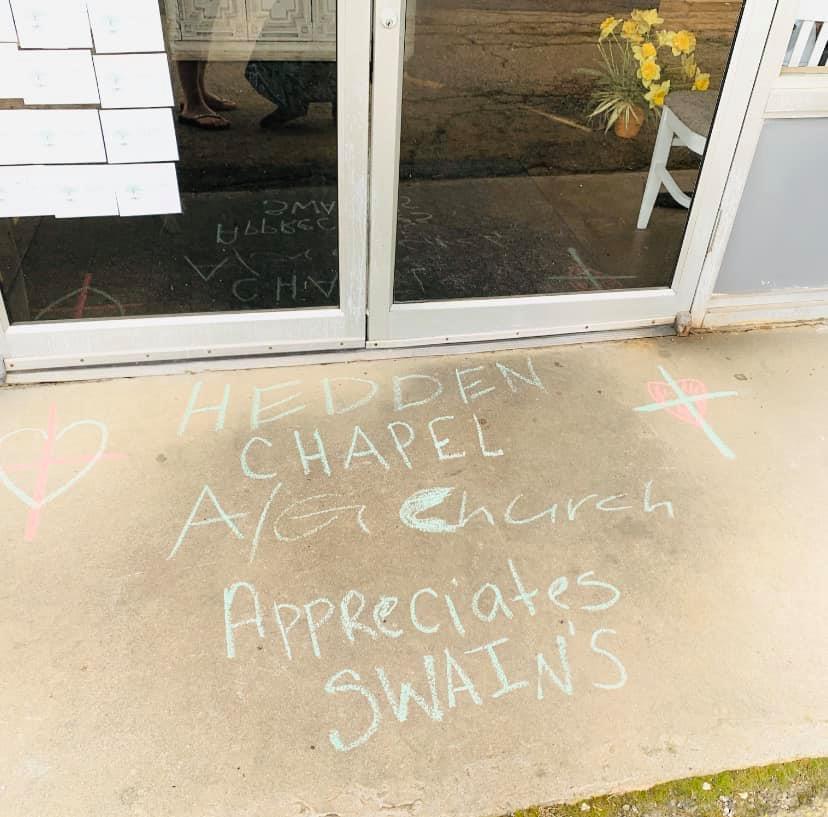 HEDDEN
CHAPEL
A/G Church
Appreciates
SWAIN'S